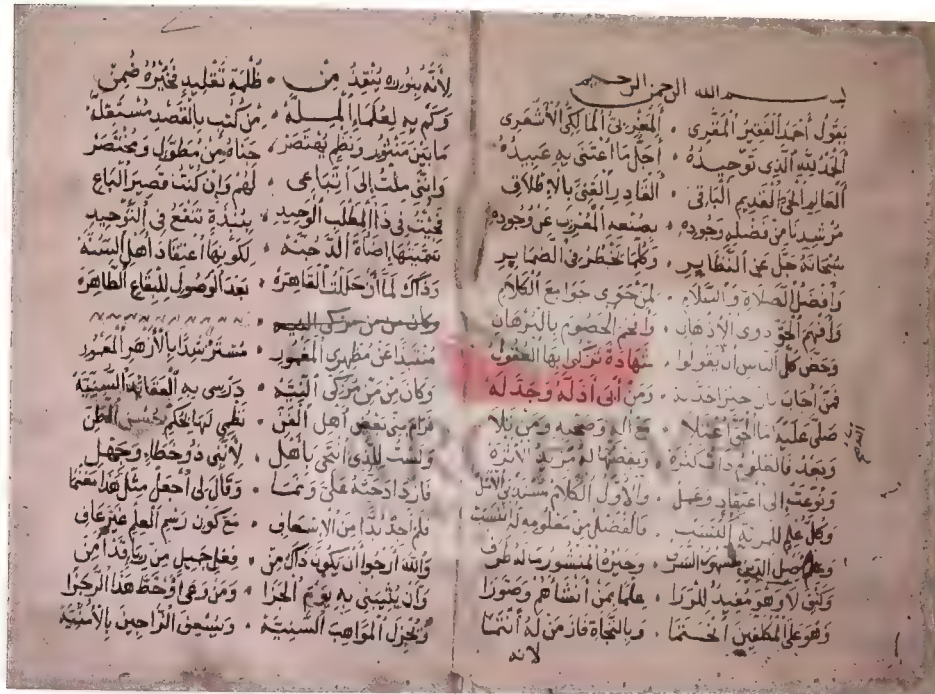 بسم الله الرحمن الرحيم
يقول أحمد الفقير المقري . المغربي المالكي الأشعري
الحمد لله الذي توحيده . أجل ما اعتنى به عبيده
العالم الحي القديم الباقي . القادر الغني بالإطلاق
مرشدنا من فضله وجوده . بصنعه المعرب عن وجوده
سبحانه جل عن النظاير . وكلما يخطر في الضماير
وأفضل الصلاة والسلام . لمن حوى جوامع الكلام
وأفحم الخصوم بالبرهان
وخص كل الناس أن يقولوا . شهادة
ومن أبى أذله وجدله
صلى عليه . مع آله وصحبه ومن تلا
وبعد فالعلوم ذات كثرة . وبعضها له مزيد الأثرة
ونوعت إلى اعتقاد وعمل . والأول الكلام
وكل علم للمزية اكتسب . فالفضل من معلومه له انتسب
وعلم أصل الدين مشهور الشرف . وخيره المنشور ماله طرف
وكيف لا وهو مفيد للورا . علما بمن أنشأهم وصورا
وهو على المكلفين انحتما . وبالنجاة فاز من له انتما
لانه
لأنه بنوره ينقذ من . ظلمة تقليد فخيره ضمن
وكم به لعلماء الملة . من كتب بالقصد مستقلة
ما بين منثور ونظم يهتصر . جناه من مطول ومختصر
وإنني ملت إلى اتباعي . لهم وإن كنت قصير الباع
فجئت في ذا المطلب الوحيد . بنبذة تنفع في التوحيد
سميتها إضاءة الدجنة . لكونها اعتقاد أهل السنة
وذاك لما أن حللت القاهرة . بعد الوصول للبقاع الطاهرة
وكان من من مزكي النيه
منتبذا عن مظهري المغبور . مسترشدا بالأزهر المعمور
وكان من من مزكي النية . درسي به العقائد السنية
فرام مني بعض أهل الفن . نظمي لها بحكم حسن الظن
ولست للذي انتمى بأهل . لأنني ذو خطاء وجهل
فازداد حثه علي ونما . وقال لي اجعل مثل هذا مغنما
فلم أجد بدا من الإسعاف . مع كون رسم العلم غير عاف
والله أرجو أن يكون ذاك من . فعل جميل من رياء قد أمن
وأن يثيبني به يوم الجزا . ومن وعى أو حفظ هذا الرجزا
ويجزل المواهب السنية . ويسعف الراجين بالأمنية